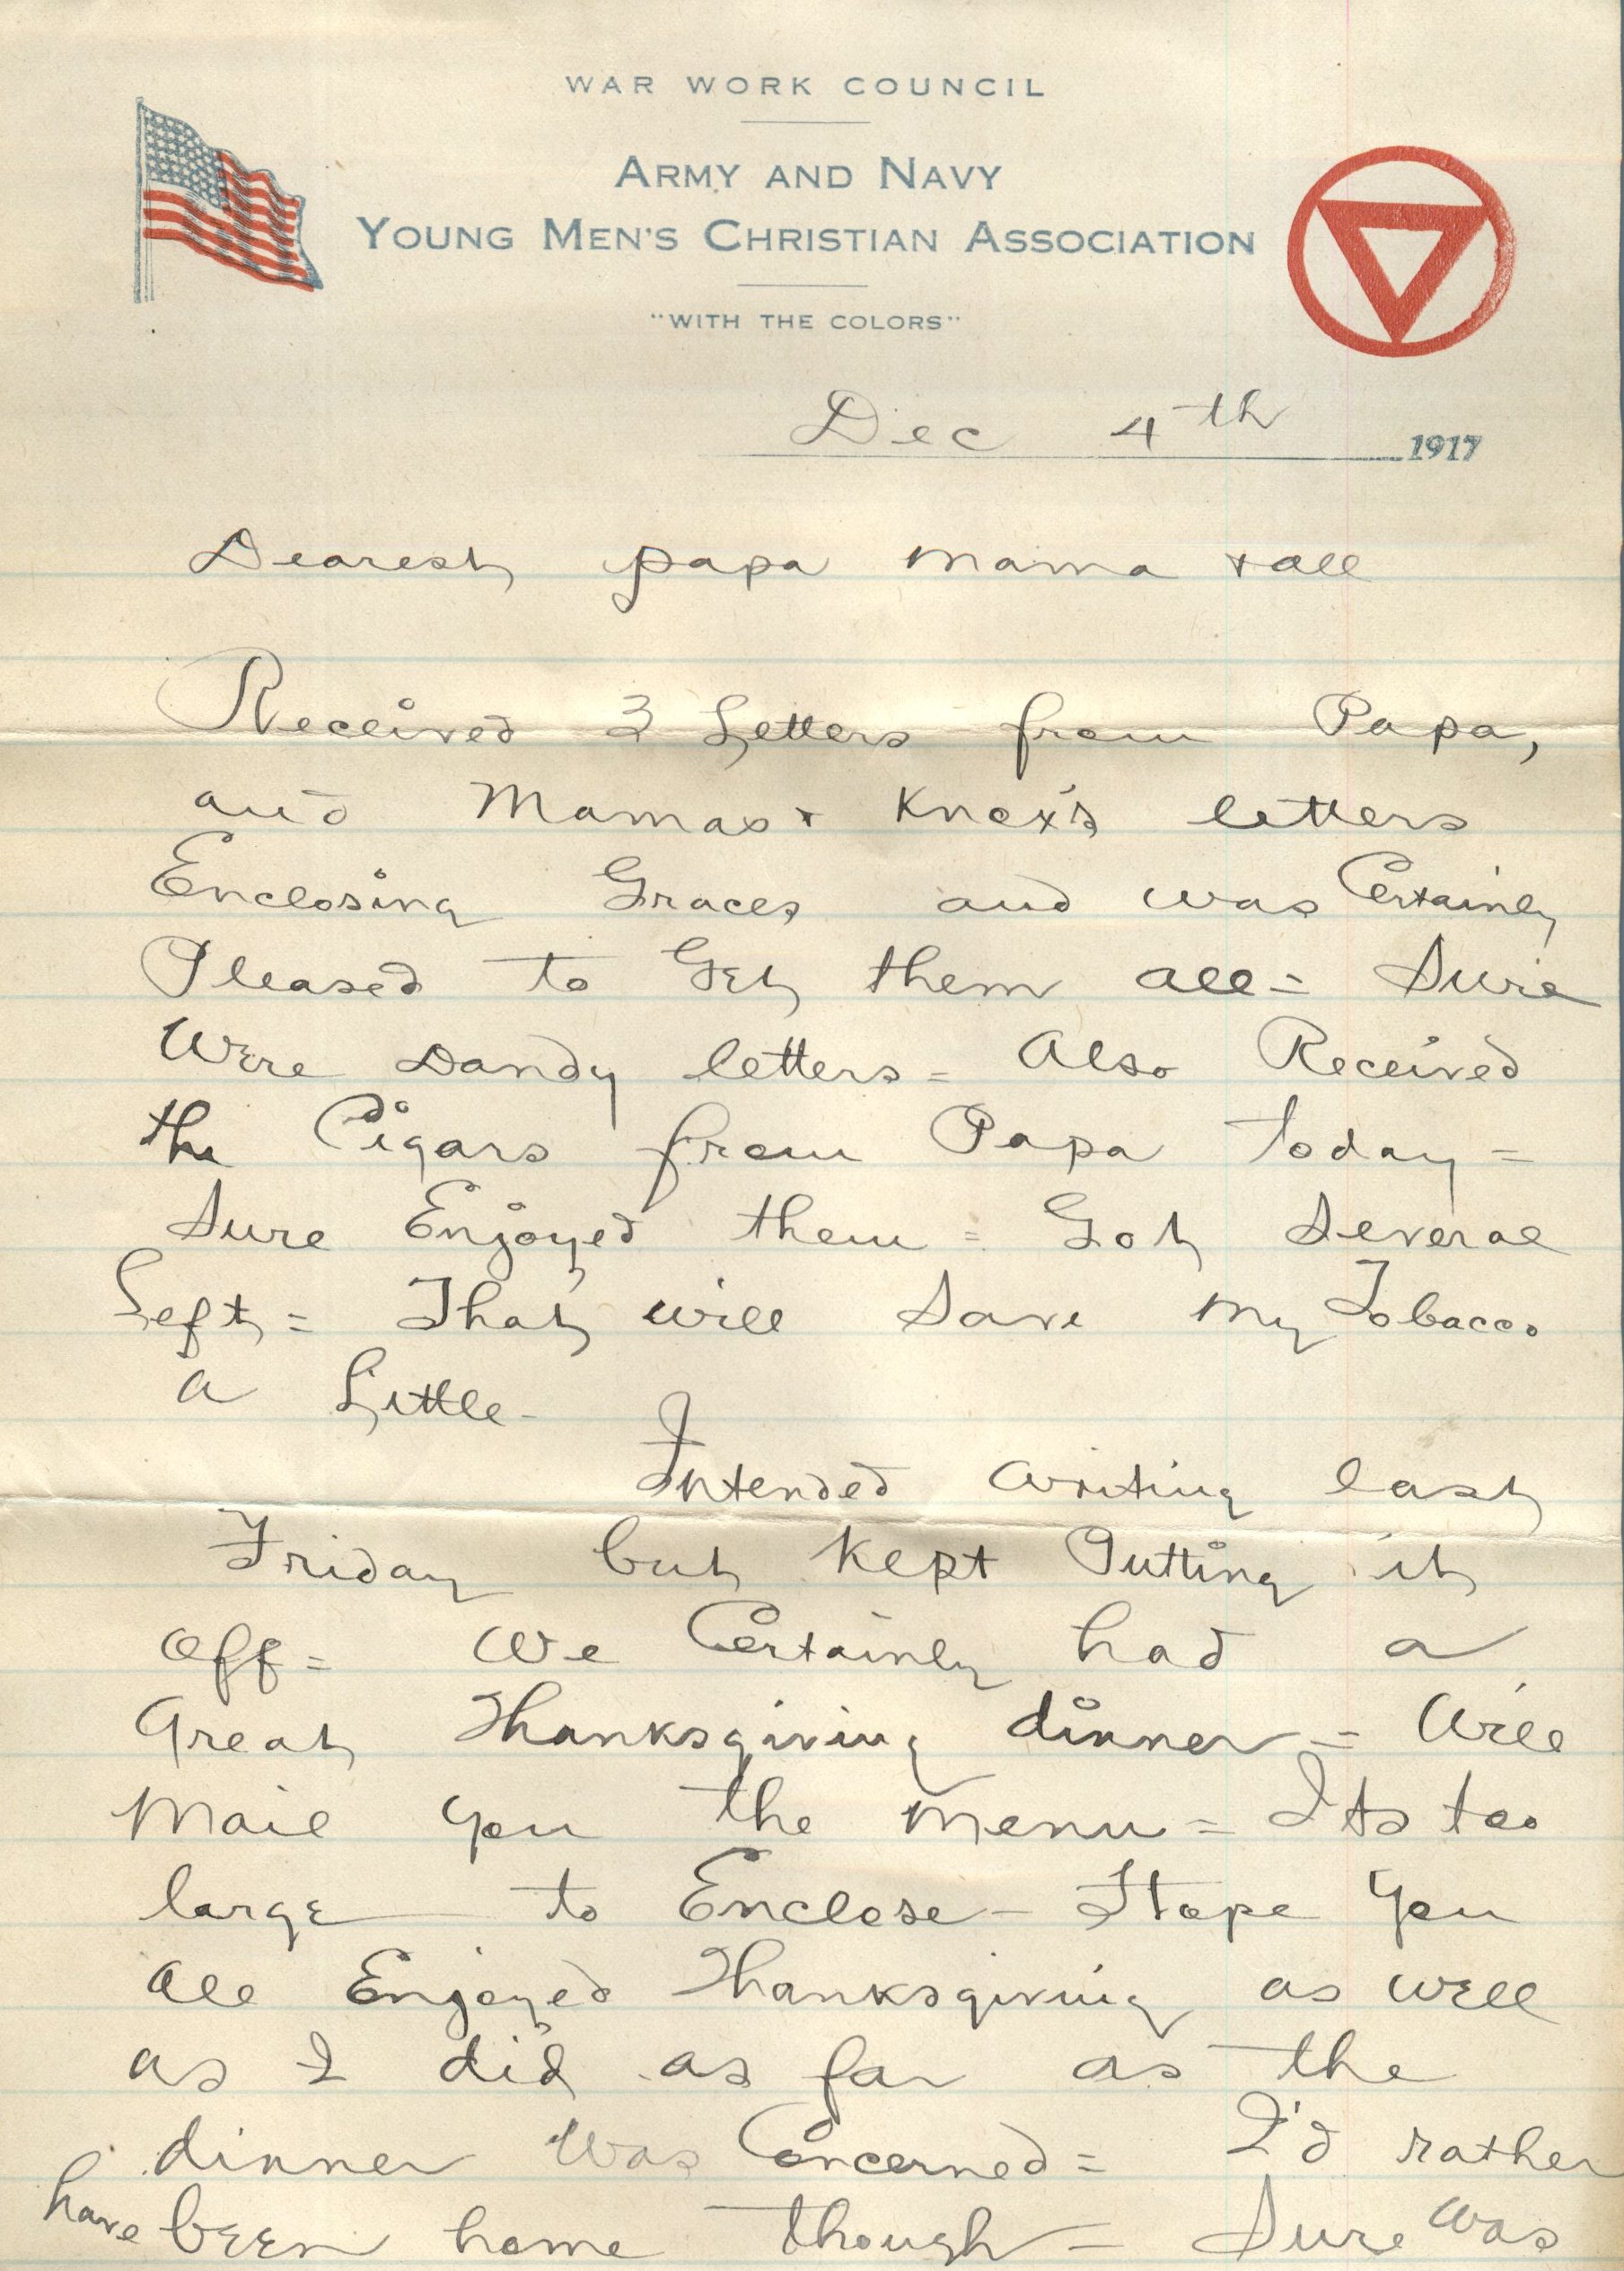 WAR WORK COUNCIL
ARMY AND NAVY
YOUNG MEN'S CHRISTIAN ASSOCIATION
"WITH THE COLORS"
Dec 4th 1917
Dearest papa mama + all
Received 3 Letters from Papa,
and Mamas + Knox's letters
Enclosing Graces and was Certainly
Pleased to Get them all = Sure
Were Dandy letters = Also Received
the Cigars from Papa today =
Sure Enjoyed them = Got Several
Left = That will Save my Tobacco
a Little -
Intended writing last
Friday but kept Putting it
off = We Certainly had a
Great Thanksgiving dinner = Will
Mail you the menu = Its too
large to Enclose - Hope you
all Enjoyed Thanksgiving as well
as I did as far as the
dinner was Concerned = I'd rather
have been home though = Sure was